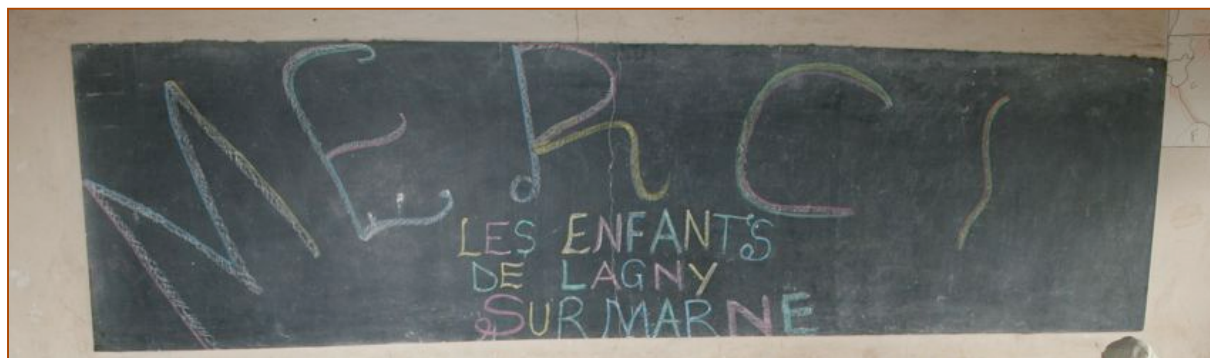 MERCI
LES ENFANTS
DE LAGNY
SUR MARNE